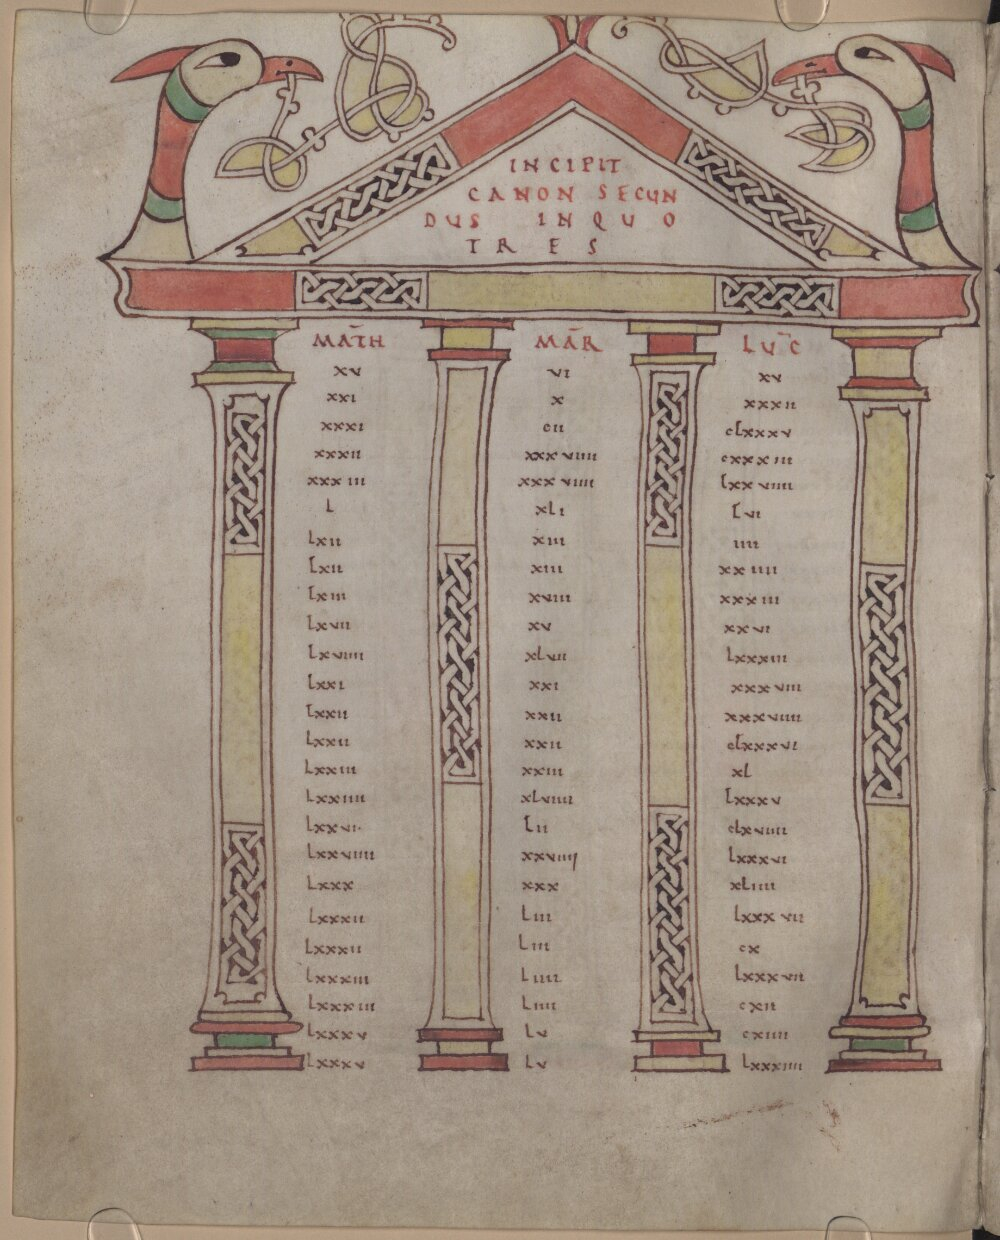 INCIPIT
CANON SECUN
DUS INQUO
TRES
MATH MAR LUC
xv vi xv
xxi x xxxii
xxxi cii clxxxv
xxxii xxxviiii cxxxiii
xxxiii xxxviiii lxxviiii
l xli lvi
lxii xiii iiii
lxii xiii xxiiii
lxiii xviii xxxiii
lxvii xv xxvi
lxviiii xlvii lxxxiii
lxxi xxi xxxviii
lxxii xxii xxxviiii
lxxii xxii clxxxvi
lxxiii xxiii xl
lxxiiii xlviiii lxxxv
lxxvi lii clxviiii
lxxviiii xxviiii lxxxvi
lxxx xxx xliiii
lxxxii liii lxxxvii
lxxxii liii cx
lxxxiii liiii lxxxvii
lxxxiii liiii cxii
lxxxv lv cxiiii
lxxxv lv lxxxiiii